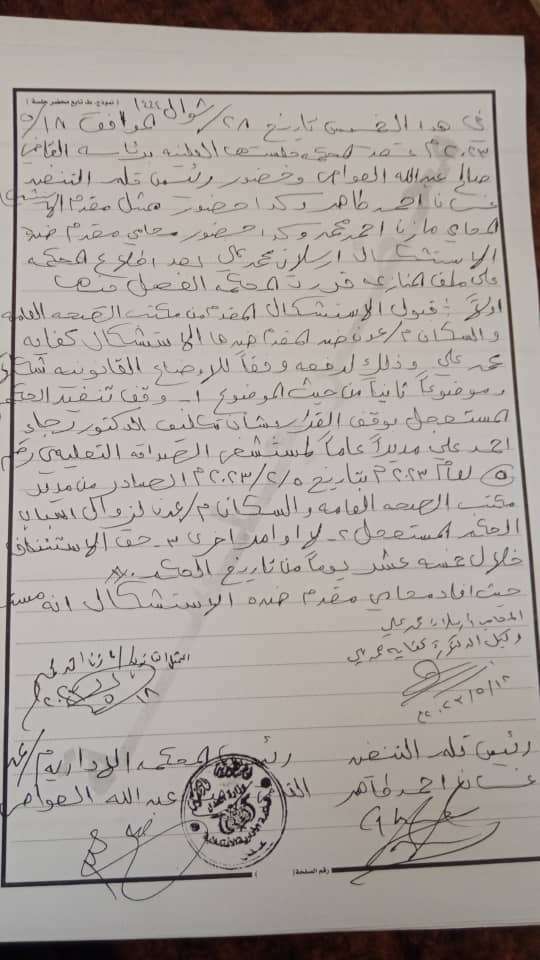 ( نموذج ملف تابع محضر جلسة )
في هذا الخميس تاريخ ٢٨/ شوال ١٤٤٤ الموافق ١٨/٥
٢٠٢٣م عقدت المحكمة جلستها العلنية برئاسة القاضي
صالح عبدالله العواض وحضور رئيس قلم التنفيذ
غسان احمد طاهر وكذا حضور ممثل مقدم الاستشكال
المحامي مازن احمد محمد وكذا حضور محامي مقدم ضده
الاستشكال ارسلان محمد علي بعد اطلاع المحكمة
على ملف المنازعة قررت المحكمة الفصل فيها
اولاً: قبول الاستشكال المقدم من مكتب الصحة العامة
والسكان م/عدن ضد المقدم ضدها الاستشكال كفاية
محمد علي وذلك لرفعه وفقاً للاوضاع القانونية شكلاً
وموضوعاً ثانياً من حيث الموضوع ١- وقف تنفيذ الحكم
المستعجل بوقف القرار بشأن تكليف الدكتور رجاء
احمد علي مديراً عاماً لمستشفى الصداقة التعليمي رقم
(٥) لعام ٢٠٢٣م بتاريخ ٢٠٢٣/٢/٥م الصادر من مدير
مكتب الصحة العامة والسكان م/عدن لزوال اسباب
الحكم المستعجل ٢- لا اوامر اخرى ٣- حق الاستئناف
خلال خمسة عشر يوماً من تاريخ الحكم
حيث افاد محامي مقدم ضده الاستشكال انه
المحامي ارسلان محمد علي
وكيل الدكتورة كفاية محمد علي
مازن احمد محمد
٢٠٢٣/٥/١٨
١٨
رئيس قلم التنفيذ
غسان احمد طاهر
رئيس المحكمة الإدارية م/عدن
عبدالله العواض
( رقم الصفحة )